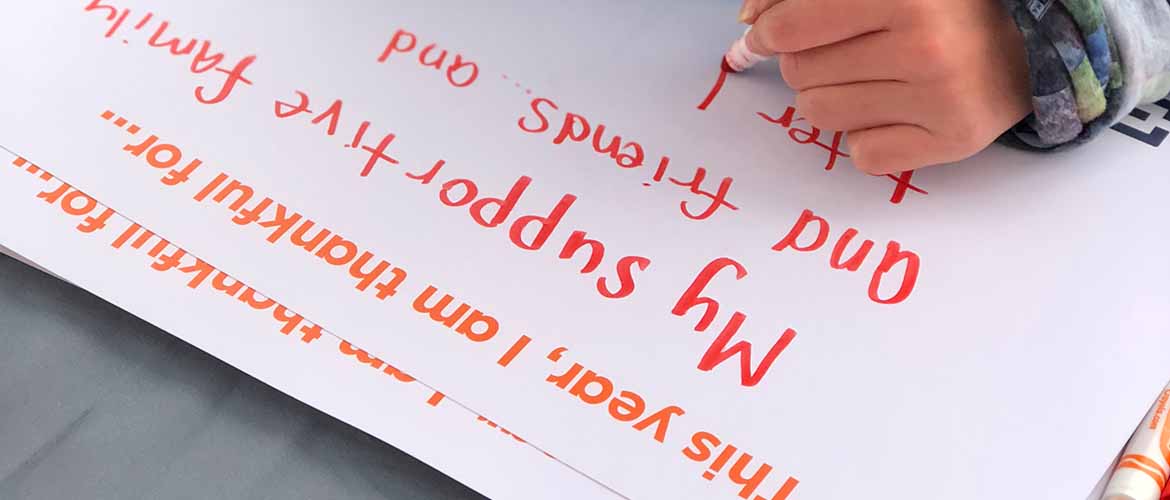 This year, I am thankful for...
My supportive family
and friends... and
I am thankful for...